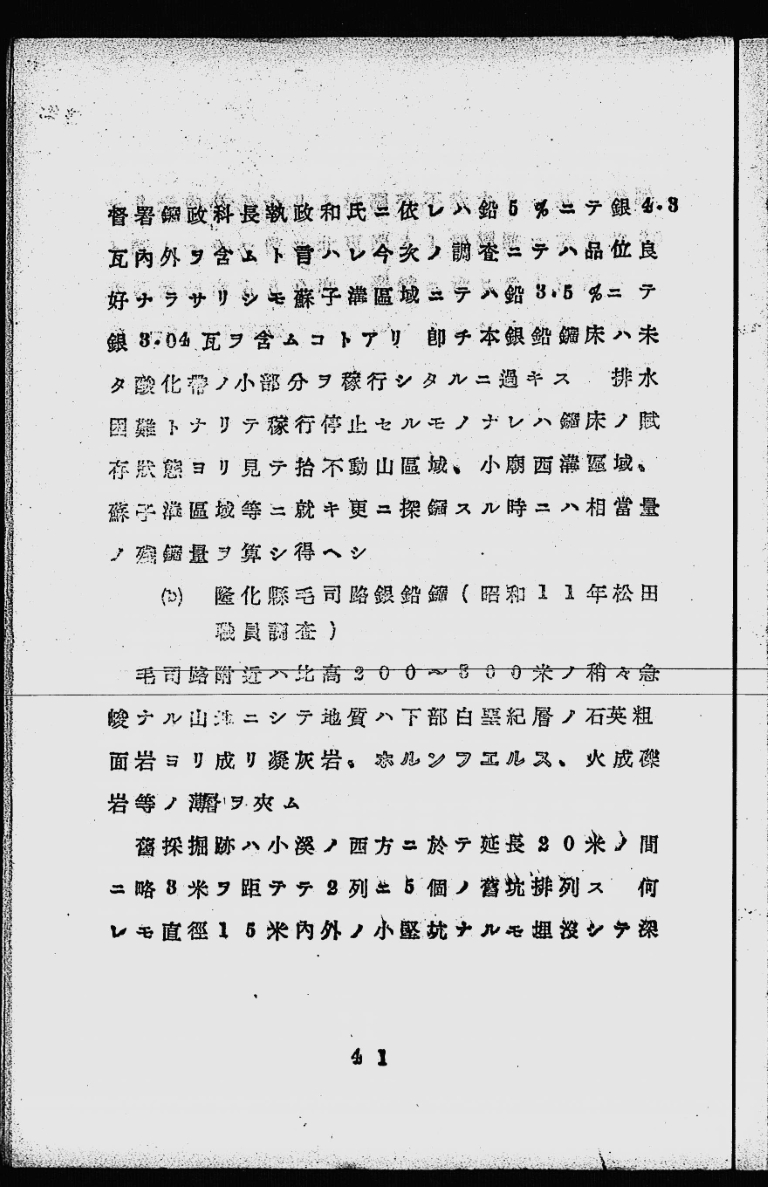 督署鑛政科長執政和氏ニ依レハ鉛5%ニテ銀4.3
瓦內外ヲ含ムト言ハレ今次ノ調査ニテハ品位良
好ナラサリシモ蘇子溝區域ニテハ鉛3.5%ニテ
銀3.04瓦ヲ含ムコトアリ 卽チ本銀鉛鑛床ハ未
タ酸化帶ノ小部分ヲ稼行シタルニ過キス 排水
困難トナリテ稼行停止セルモノナレハ鑛床ノ賦
存狀態ヨリ見テ拾不動山區域、小廟西溝區域、
蘇子溝區域等ニ就キ更ニ探鑛スル時ニハ相當量
ノ殘鑛量ヲ算シ得ヘシ
(b) 隆化縣毛司路銀鉛鑛(昭和11年松田
職員調査)
毛司路附近ハ比高200~300米ノ稍々急
峻ナル山地ニシテ地質ハ下部白堊紀層ノ石英粗
面岩ヨリ成リ凝灰岩。ホルンフエルス、火成礫
岩等ノ薄層ヲ夾ム
舊採掘跡ハ小溪ノ西方ニ於テ延長20米ノ間
ニ略3米ヲ距テテ2列ニ5個ノ舊坑排列ス 何
レモ直徑15米內外ノ小竪坑ナルモ埋沒シテ深
41